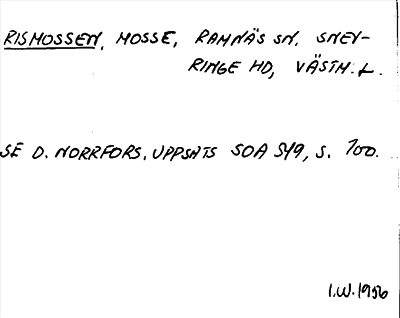 RISMOSSEN, MOSSE, RAMNÄS SN. SNEV-
RINGE HD, VÄSTM. L.
SE D. NORRFORS. UPPSATS SOA 519, S. 100.
I.W. 1956